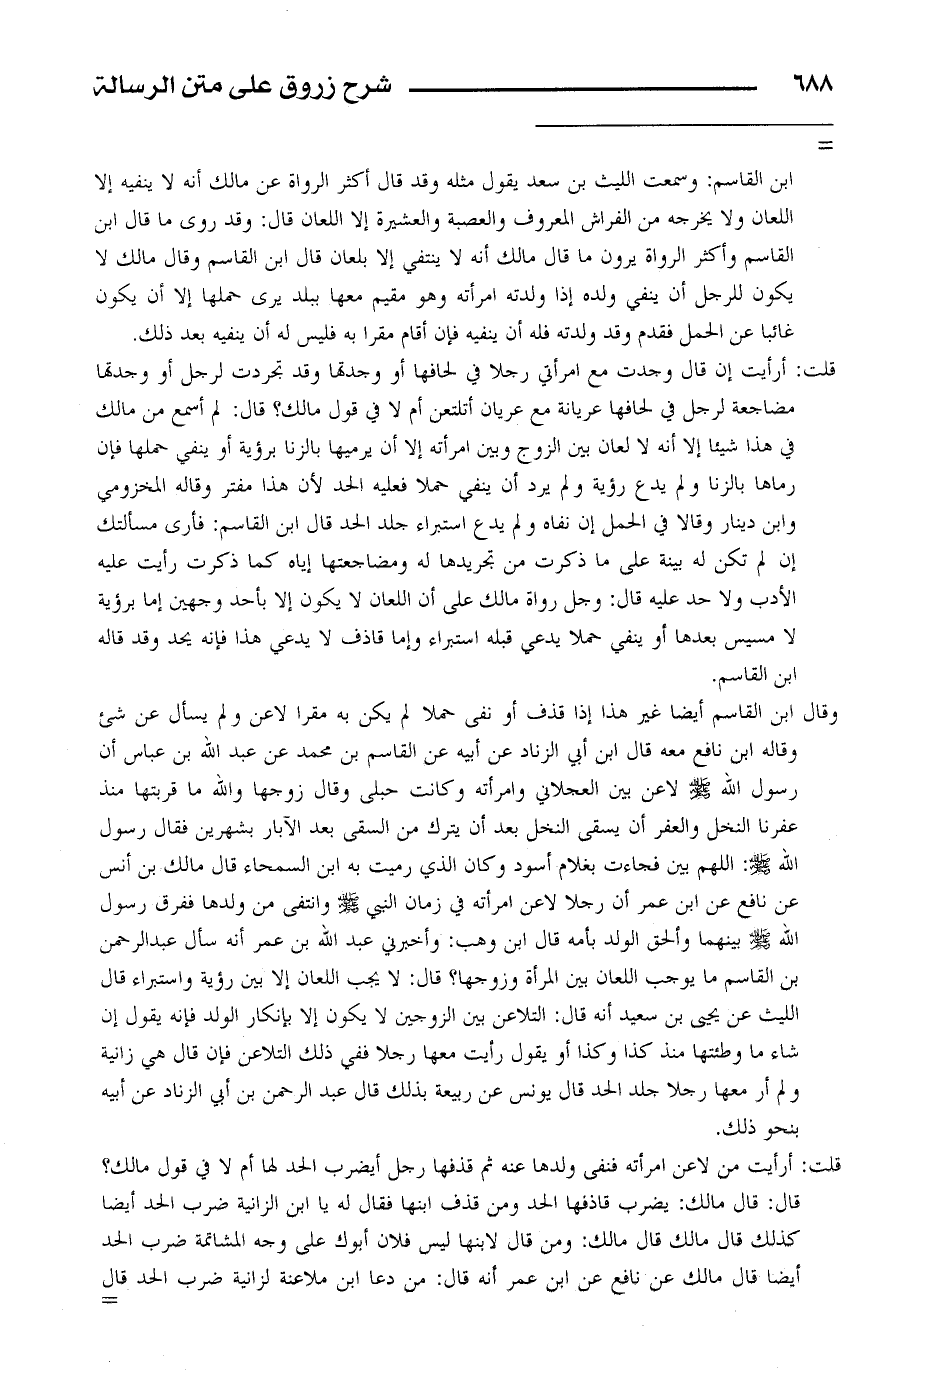 ٦٨٨ شرح زروق على متن الرسالة
=
ابن القاسم: وسمعت الليث بن سعد يقول مثله وقد قال أكثر الرواة عن مالك أنه لا ينفيه إلا
اللعان ولا يخرجه من الفراش المعروف والعصبة والعشيرة إلا اللعان قال: وقد روى ما قال ابن
القاسم وأكثر الرواة يرون ما قال مالك أنه لا ينتفي إلا بلعان قال ابن القاسم وقال مالك لا
يكون للرجل أن ينفي ولده إذا ولدته امرأته وهو مقيم معها ببلد يرى حملها إلا أن يكون
غائبا عن الحمل فقدم وقد ولدته فله أن ينفيه فإن أقام مقرا به فليس له أن ينفيه بعد ذلك.
قلت: أرأيت إن قال وجدت مع امرأتي رجلا في لحافها أو وجدتها وقد تجردت لرجل أو وجدتها
مضاجعة لرجل في لحافها عريانة مع عريان أتلتعن أم لا في قول مالك؟ قال: لم أسمع من مالك
في هذا شيئا إلا أنه لا لعان بين الزوج وبين امرأته إلا أن يرميها بالزنا برؤية أو ينفي حملها فإن
رماها بالزنا ولم يدع رؤية ولم يرد أن ينفي حملا فعليه الحد لأن هذا مفتر وقاله المخزومي
وابن دينار وقالا في الحمل إن نفاه ولم يدع استبراء جلد الحد قال ابن القاسم: فأرى مسألتك
إن لم تكن له بينة على ما ذكرت من تجريدها له ومضاجعتها إياه كما ذكرت رأيت عليه
الأدب ولا حد عليه قال: وجل رواة مالك على أن اللعان لا يكون إلا بأحد وجهين إما برؤية
لا مسيس بعدها أو ينفي حملا يدعي قبله استبراء وإما قاذف لا يدعي هذا فإنه يحد وقد قاله
ابن القاسم.
وقال ابن القاسم أيضا غير هذا إذا قذف أو نفى حملا لم يكن به مقرا لاعن ولم يسأل عن شئ
وقاله ابن نافع معه قال ابن أبي الزناد عن أبيه عن القاسم بن محمد عن عبد الله بن عباس أن
رسول الله ﷺ لاعن بين العجلاني وامرأته وكانت حبلى وقال زوجها والله ما قربتها منذ
عفرنا النخل والعفر أن يسقى النخل بعد أن يترك من السقى بعد الآبار بشهرين فقال رسول
الله ﷺ: اللهم بين فجاءت بغلام أسود وكان الذي رميت به ابن السمحاء قال مالك بن أنس
عن نافع عن ابن عمر أن رجلا لاعن امرأته في زمان النبي ﷺ وانتفى من ولدها ففرق رسول
الله ﷺ بينهما وألحق الولد بأمه قال ابن وهب: وأخبرني عبد الله بن عمر أنه سأل عبدالرحمن
بن القاسم ما يوجب اللعان بين المرأة وزوجها؟ قال: لا يجب اللعان إلا بين رؤية واستبراء قال
الليث عن يحيى بن سعيد أنه قال: التلاعن بين الزوجين لا يكون إلا بإنكار الولد فإنه يقول إن
شاء ما وطئتها منذ كذا وكذا أو يقول رأيت معها رجلا ففي ذلك التلاعن فإن قال هي زانية
ولم أر معها رجلا جلد الحد قال يونس عن ربيعة بذلك قال عبد الرحمن بن أبي الزناد عن أبيه
بنحو ذلك.
قلت: أرأيت من لاعن امرأته فنفى ولدها عنه ثم قذفها رجل أيضرب الحد لها أم لا في قول مالك؟
قال: قال مالك: يضرب قاذفها الحد ومن قذف ابنها فقال له يا ابن الزانية ضرب الحد أيضا
كذلك قال مالك قال مالك: ومن قال لابنها ليس فلان أبوك على وجه المشاتمة ضرب الحد
أيضا قال مالك عن نافع عن ابن عمر أنه قال: من دعا ابن ملاعنة لزانية ضرب الحد قال
=